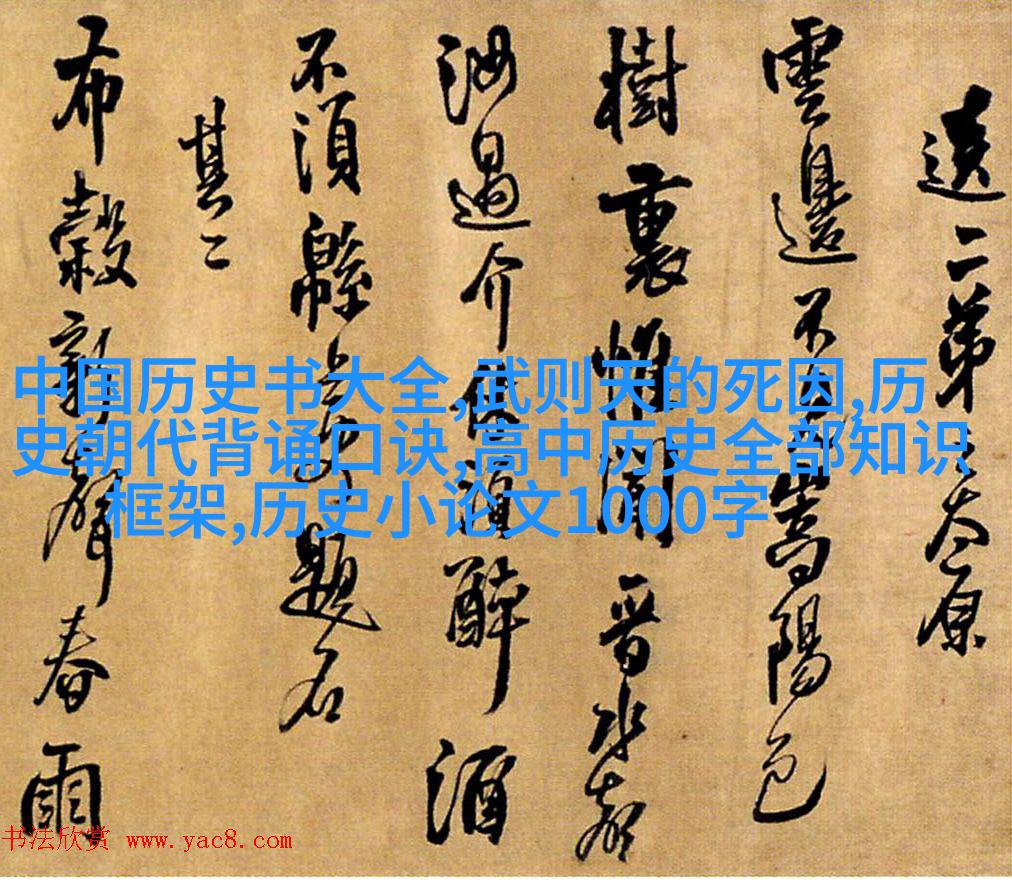 送二弟之太原
雲邊不嵩陽色
樹裏惟聞晉水
汝過介休須醉酒
不須緜上題名
其二
布穀聲春雨
中国历史书大全,武则天的死因,历
史朝代背诵口诀,高中历史全部知识
框架,历史小论文1000字
书法欣赏 www.yac8.com